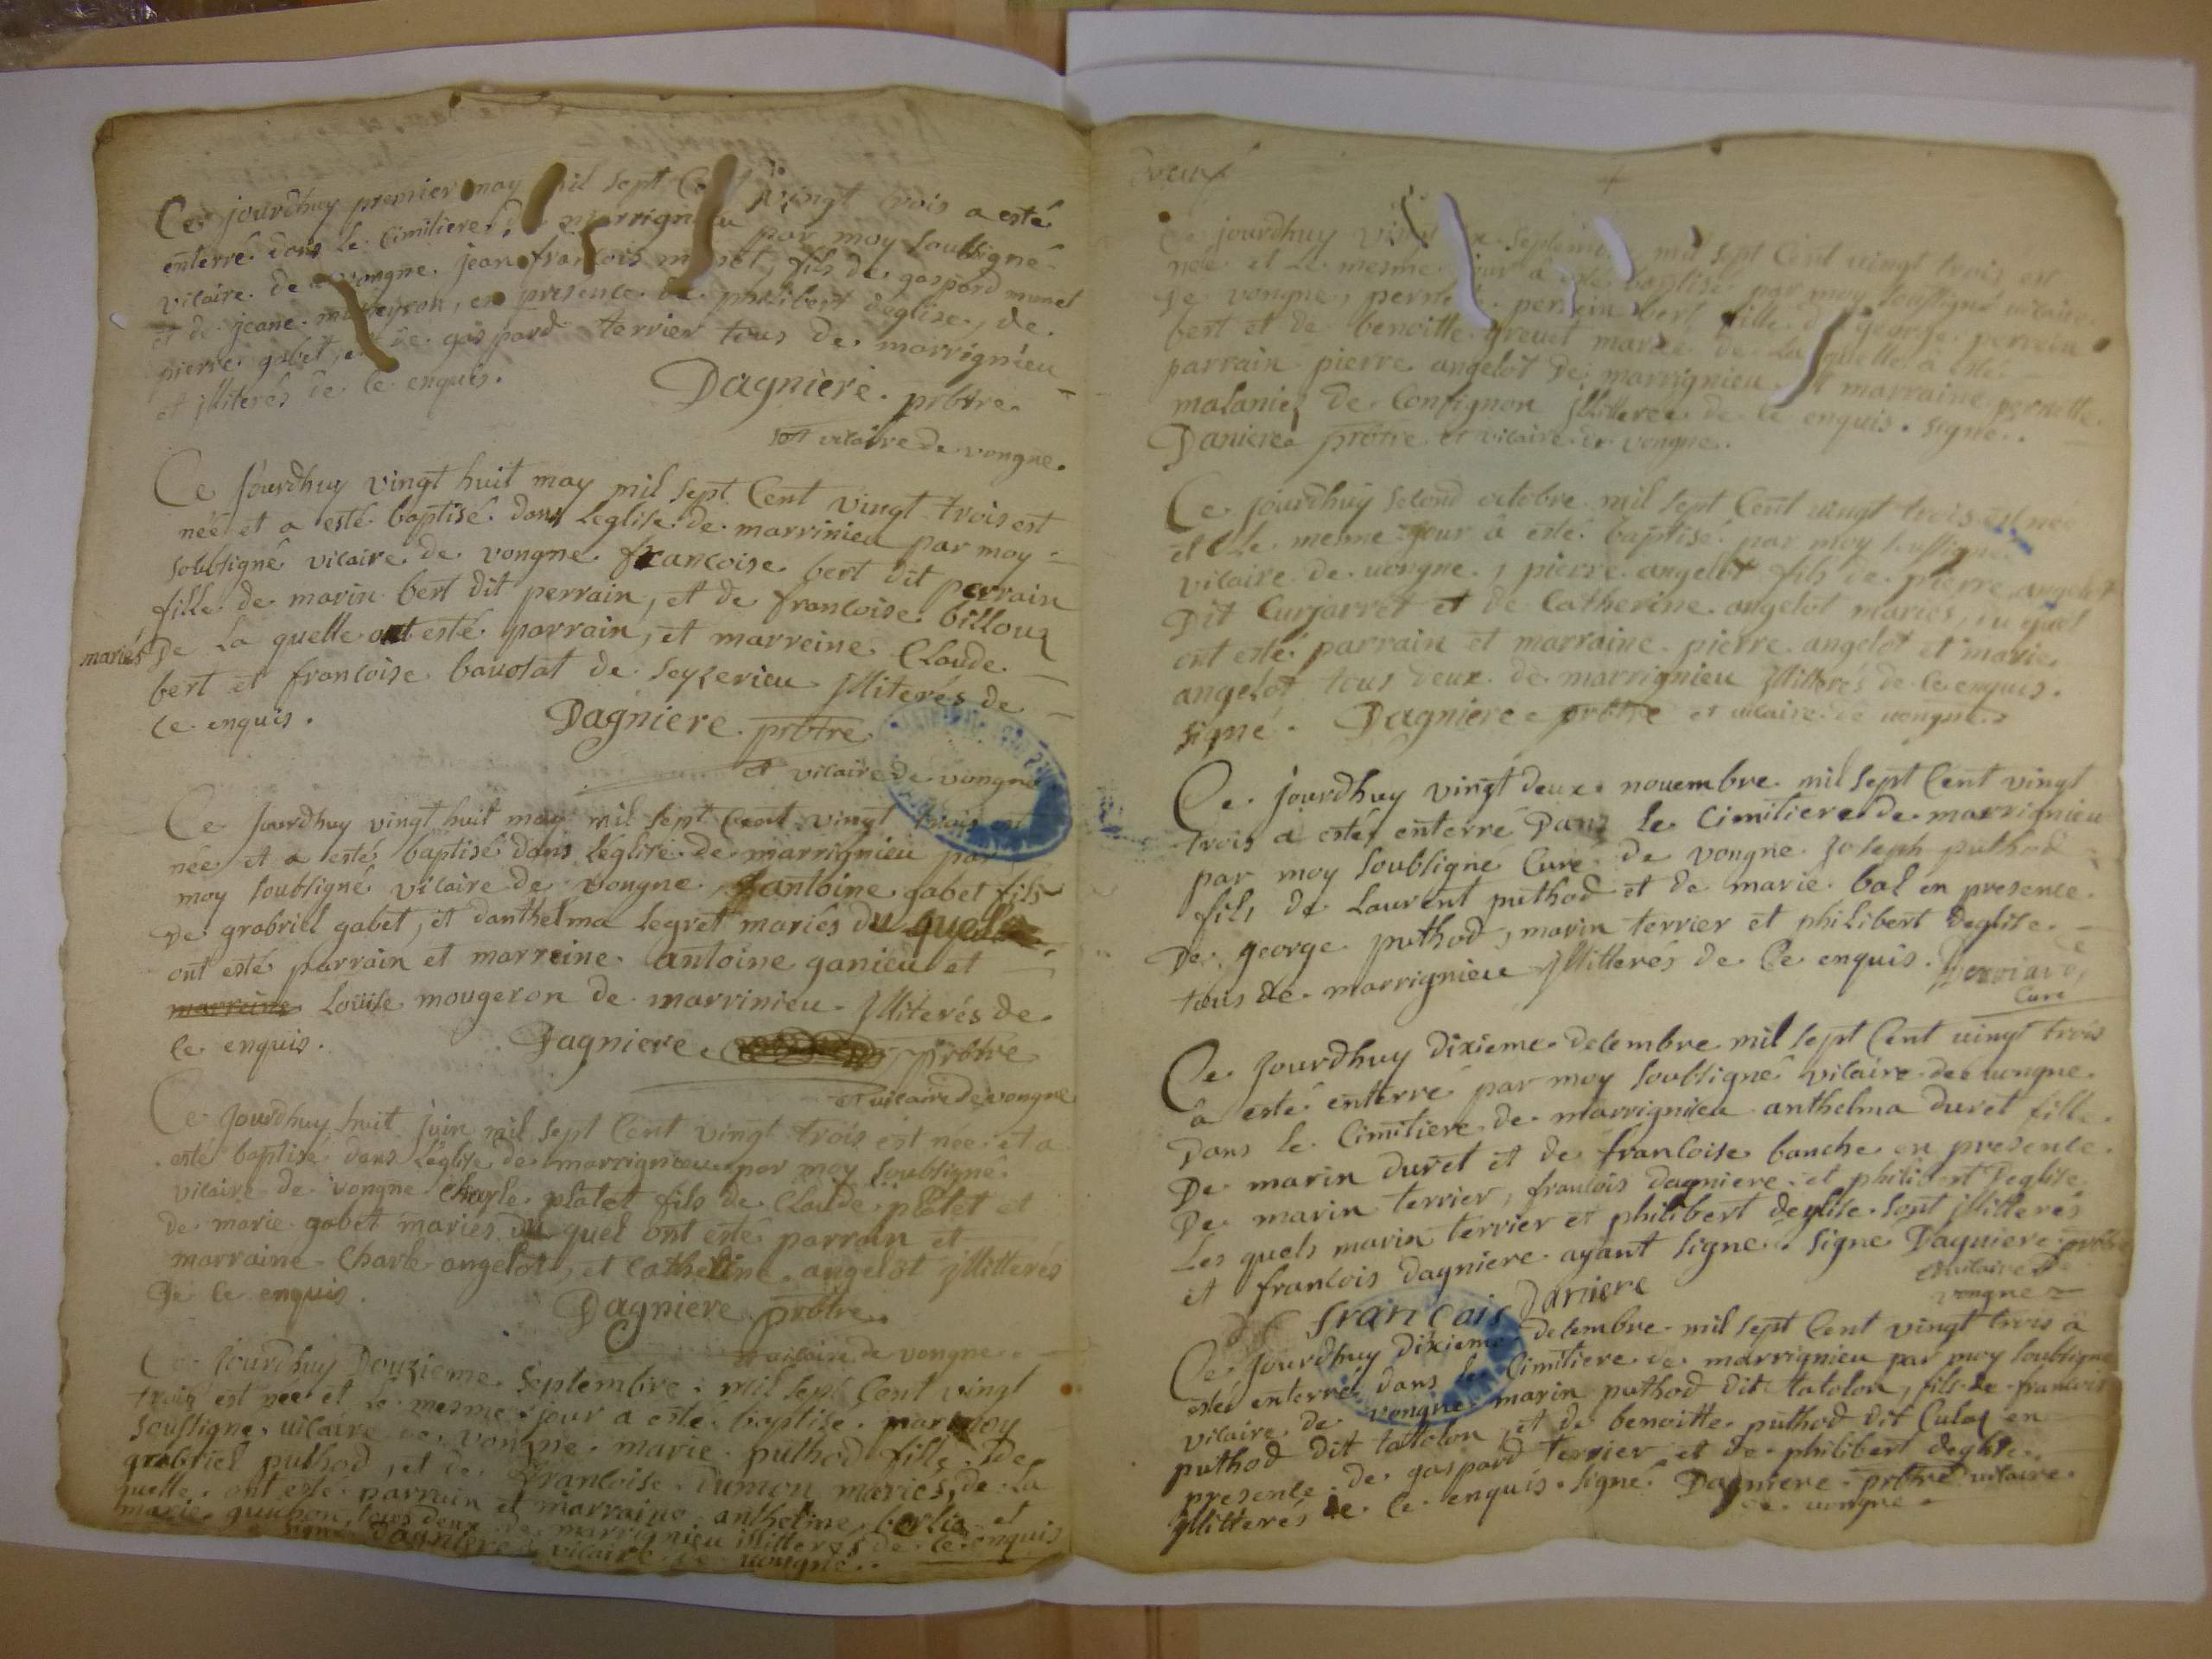 Ce jourdhuy premier may mil sept Cent vingt trois a esté
enterré dans le Cimitiere de marrignieu par moy soubsigné
vicaire de vongne jean francois munet, fils de gaspard munet
et de jeane, en presence de philibert deglise, de
pierre gabet, et de gaspard terrier tous de marrignieu
et jlliterés de ce enquis.
Dagniere prbtre
vicaire de vongne.
Ce jourdhuy vingt huit may mil sept Cent vingt trois est
neé et a esté baptisé dans leglise de marrinieu par moy
soubsigné vicaire de vongne francoise bert dit perrain
fille de marin bert dit perrain, et de francoise billouz
mariés De La quelle ont esté parrain, et marreine Claude
bert et francoise bauosat de seyzerieu jlliterés de
ce enquis.
Dagniere prbtre
et vicaire de vongne
Ce jourdhuy vingt huit may mil sept Cent vingt trois est
neé et a esté baptisé dans léglise de marrignieu par
moy soubsigné vicaire de vongne antoine gabet fils
De grabriel gabet, et danthelma legret mariés du quel
ont esté parrain et marreine antoine ganieu et
marreine Loüise mougeron de marrinieu jlliterés de
ce enquis.
Dagniere prbtre
et vicaire de vongne
Ce jourdhuy huit juin mil sept Cent vingt trois est neé et a
esté baptisé dans Léglise de marrignieu par moy soubsigné
vicaire de vongne Charle platet fils de Claude platet et
de marie gabet mariés du quel ont esté parrain et
marraine Charle angelot, et Catheline angelot jllitterés
De ce enquis.
Dagniere prbtre
et vicaire de vongne
Ce jourdhuy Douzieme Septembre mil sept Cent vingt
trois est neé et le mesme jour a esté baptisé par moy
soussigné vicaire de vongne marie puthod fille De
grabriel puthod, et de francoise dumon mariés, de La
quelle ont esté parrain et marraine antheline berlie et
marie, tous deux de marrignieu jllitterés de ce enquis
signé Dagniere vicaire de vongne.
Ce jourdhuy Septembre mil sept Cent vingt trois est
neé et Le mesme jour à esté baptisé par moy soussigné vicaire
De vongne, perrain bert fille de george perrein
bert et de benoitte greuet mariés de La quelle a esté
parrain pierre angelot De marrignieu et marraine pernette
malanie De Confignon jllitteree de ce enquis. signé.
Daniere prbtre et vicaire de vongne.
Ce jourdhuy second octobre mil sept Cent vingt trois est neé
et Le mesme jour à esté baptisé par moy soussigné
vicaire de uongne, pierre angelot fils de pierre angelot
Dit Curjarret et de Catherine angelot mariés, du quel
ont esté parrain et marraine pierre angelot et marie
angelot tous deux de marrignieu jllitterés de ce enquis.
signé. Dagniere prbtre et vicaire de uongne
Ce jourdhuy vingt deux nouembre mil sept Cent vingt
trois a esté enterré Dans le Cimitiere de marrignieu
par moy soubsigné Curé de vongne Joseph puthod
fils de Laurent puthod et de marie bal en presence
De george puthod, marin terrier et philibert Deglise
tous de marrignieu jllitterés de Ce enquis.
Curé
Ce jourdhuy dixieme decembre mil sept Cent uingt trois
à esté enterré par moy soubsigné vicaire de uongne
Dans le Cimitiere de marrignieu anthelma duret fille
De marin duret et de francoise banche en presence
De marin terrier, francois dagniere et philibert Deglise
Les quels marin terrier et philibert deglise sont jllitterés
et francois dagniere ayant signé. signé Dagniere prbtre
et vicaire de
vongne
francais Daniere
Ce jourdhuy dixieme decembre mil sept Cent vingt trois à
esté enterré dans le Cimitiere de marrignieu par moy soubsigné
vicaire de vongne marin puthod dit tatolon, fils de francois
puthod dit tattolon, et de benoitte puthod dit Culaz en
presence de gaspard terrier et de philibert deglise
jllitterés de ce enquis. signé Dagniere prbtre uicaire
de uongne.